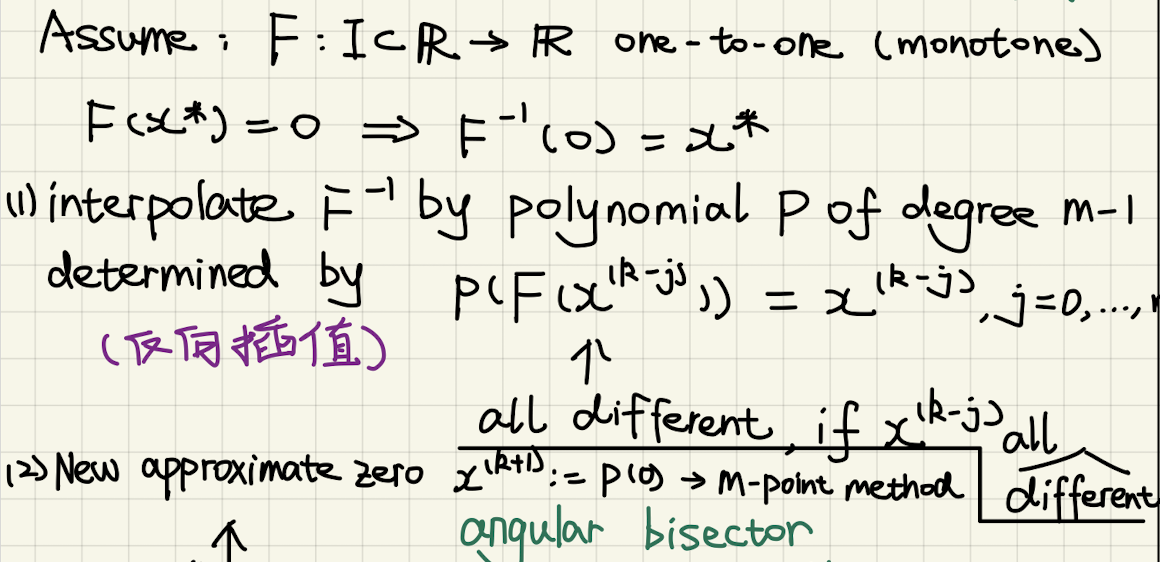 Assume: F: I⊂ℝ → ℝ one-to-one (monotone)
F(x*) = 0 ⇒ F⁻¹(0) = x*
(1) interpolate F⁻¹ by polynomial P of degree m-1
determined by P(F(x^(k-j))) = x^(k-j), j=0,...,
(反向插值)
↑
all different, if x^(k-j) all
different
(2) New approximate zero x^(k+1) := P(0) → M-point method
↑
angular bisector